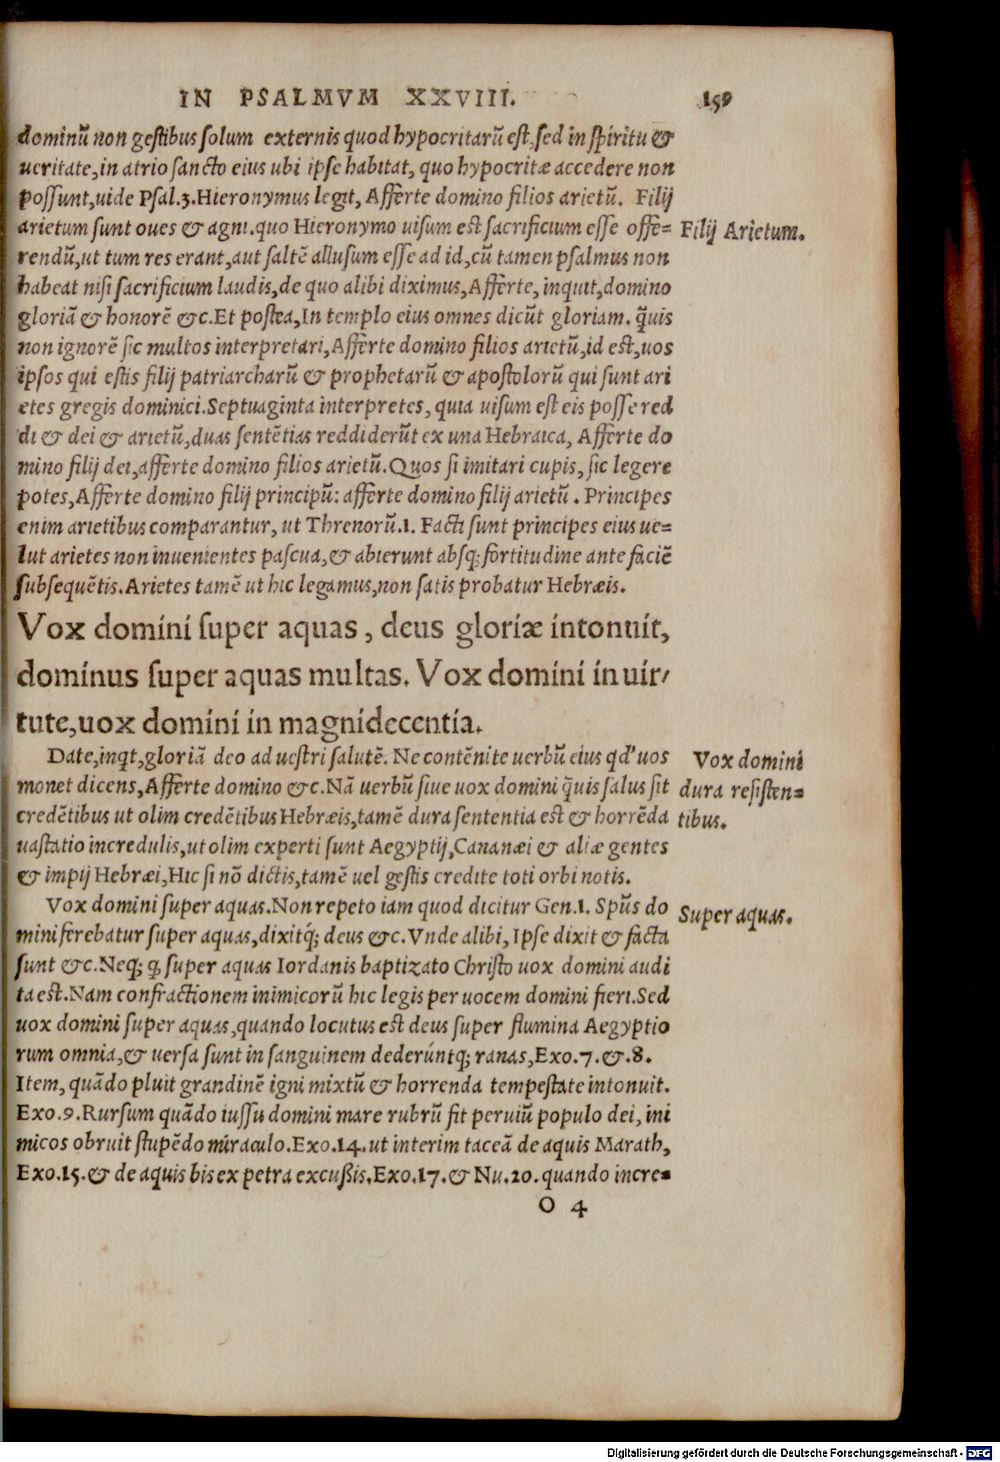 IN PSALMVM XXVIII. 159
dominū non gestibus solum externis quod hypocritarū est, sed in spiritu &
ueritate, in atrio sancto eius ubi ipse habitat, quo hypocritæ accedere non
possunt, uide Psal.3. Hieronymus legit, Afferte domino filios arietū. Filij
arietum sunt oues & agni. quo Hieronymo uisum est sacrificium esse offe=
Filij Arietum.
rendū, ut tum res erant, aut saltē allusum esse ad id, cū tamen psalmus non
habeat nisi sacrificium laudis, de quo alibi diximus, Afferte, inquit, domino
gloriā & honorē &c. Et postea, In templo eius omnes dicūt gloriam. q̄uis
non ignorē sic multos interpretari, Afferte domino filios arietū, id est, uos
ipsos qui estis filij patriarcharū & prophetarū & apostolorū qui sunt ari
etes gregis dominici. Septuaginta interpretes, quia uisum est eis posse red
di & dei & arietū, duas sentētias reddiderūt ex una Hebraica, Afferte do
mino filij dei, afferte domino filios arietū. Quos si imitari cupis, sic legere
potes, Afferte domino filij principū: afferte domino filij arietū. Principes
enim arietibus comparantur, ut Threnorū.1. Facti sunt principes eius ue=
lut arietes non inuenientes pascua, & abierunt absq; fortitudine ante faciē
subsequētis. Arietes tamē ut hic legamus, non satis probatur Hebræis.
Vox domini super aquas, deus gloriæ intonuit,
dominus super aquas multas. Vox domini in uir/
tute, uox domini in magnidecentia.
Date, inqt, gloriā deo ad uestri salutē. Ne contēnite uerbū eius qd' uos
Vox domini
monet dicens, Afferte domino &c. Nā uerbū siue uox domini q̄uis salus sit
dura resisten=
credētibus ut olim credētibus Hebræis, tamē dura sententia est & horrēda
tibus.
uastatio incredulis, ut olim experti sunt Aegyptij, Cananæi & aliæ gentes
& impij Hebræi, Hic si nō dictis, tamē uel gestis credite toti orbi notis.
Vox domini super aquas. Non repeto iam quod dicitur Gen.1. Spūs do
Super aquas.
mini ferebatur super aquas, dixitq́; deus &c. Vnde alibi, Ipse dixit & facta
sunt &c. Neq; ꝙ super aquas Iordanis baptizato Christo uox domini audi
ta est. Nam confractionem inimicorū hic legis per uocem domini fieri. Sed
uox domini super aquas, quando locutus est deus super flumina Aegyptio
rum omnia, & uersa sunt in sanguinem dederúntq; ranas, Exo.7.&.8.
Item, quādo pluit grandinē igni mixtū & horrenda tempestate intonuit.
Exo.9. Rursum quādo iussu domini mare rubrū fit peruiū populo dei, ini
micos obruit stupēdo miraculo. Exo.14. ut interim taceā de aquis Marath,
Exo.15. & de aquis bis ex petra excußis. Exo.17. & Nu.20. quando incre=
O 4
Digitalisierung gefördert durch die Deutsche Forschungsgemeinschaft - DFG